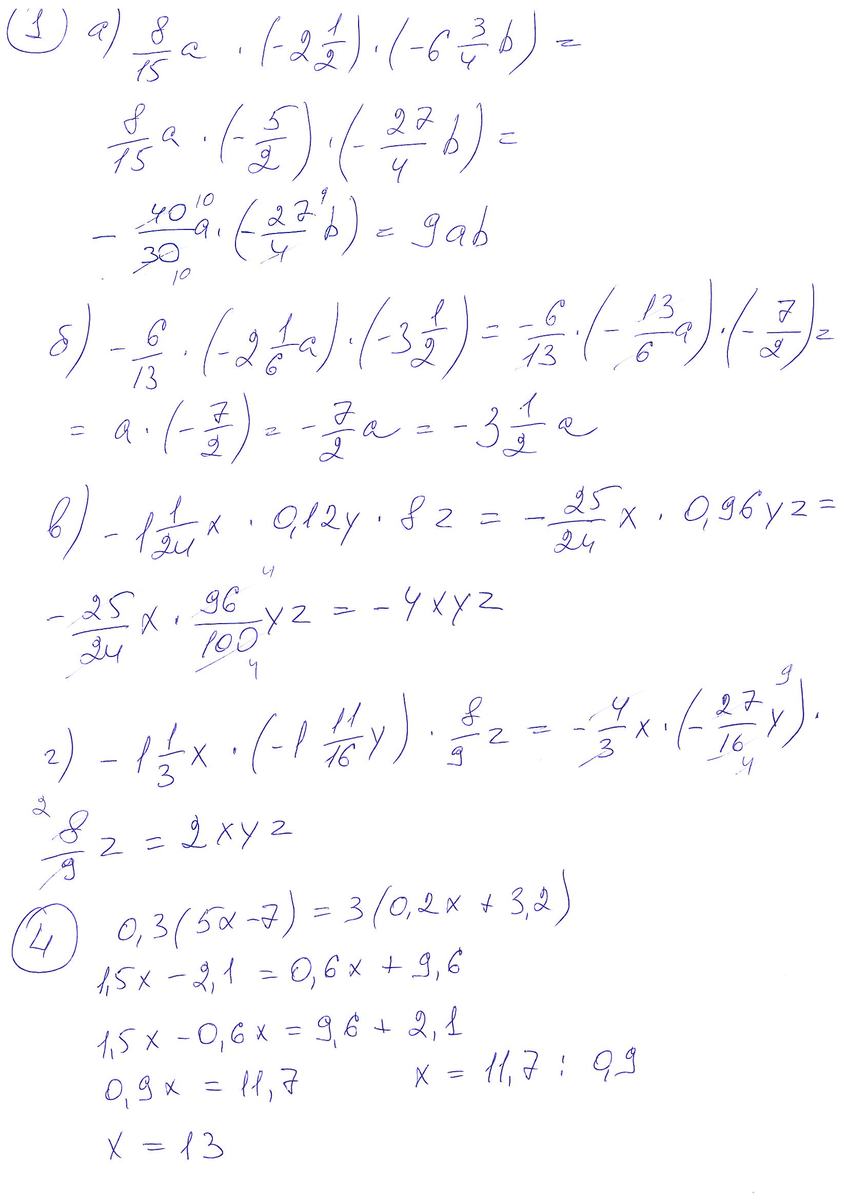 1 а) 8/15 a · (-2 1/2) · (-6 3/4 b) =
8/15 a · (-5/2) · (-27/4 b) =
- 40/30 a · (-27/4 b) = 9ab
б) - 6/13 · (-2 1/6 a) · (-3 1/2) = -6/13 · (-13/6 a) · (-7/2) =
= a · (-7/2) = -7/2 a = -3 1/2 a
в) -1 1/24 x · 0,12y · 8z = -25/24 x · 0,96yz =
-25/24 x · 96/100 yz = -4xyz
г) -1 1/3 x · (-1 11/16 y) · 8/9 z = -4/3 x · (-27/16 y) ·
8/9 z = 2xyz
4 0,3(5x-7) = 3(0,2x + 3,2)
1,5x - 2,1 = 0,6x + 9,6
1,5x - 0,6x = 9,6 + 2,1
0,9x = 11,7 x = 11,7 : 0,9
x = 13